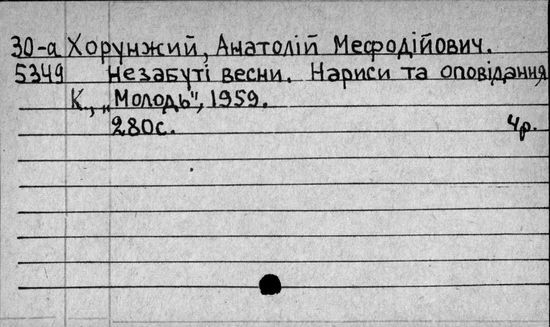 30-а Хорунжий, Анатолій Мефодійович.
5349 Незабуті весни. Нариси та оповідання
К., „Молодь", 1959.
280с. 4р.